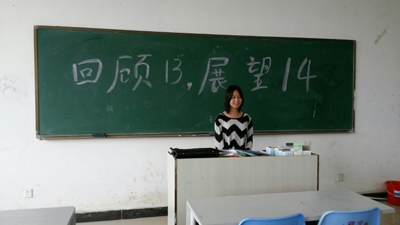 回顾13,展望14